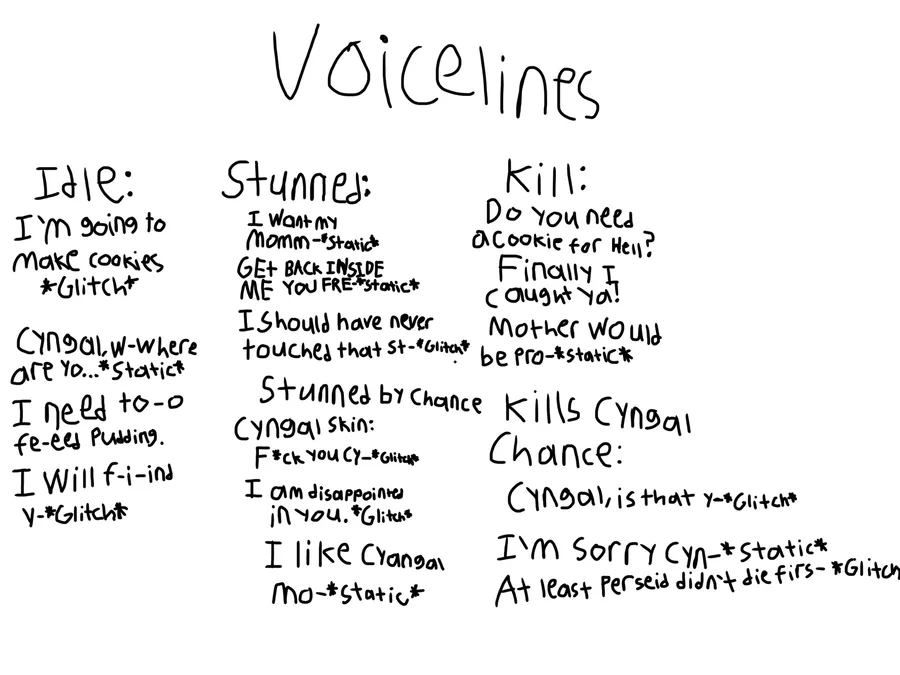 Voicelines
Idle:
I'm going to
make cookies
*Glitch*
Cyngal, w-where
are yo...*Static*
I need to-o
fe-eed Pudding.
I Will f-i-ind
y-*Glitch*
Stunned:
I Want my
Momm-*Static*
GEt BACK INSIDE
ME YOU FRE-*Static*
I Should have never
touched that St-*Glitch*.
Stunned by Chance
Cyngal Skin:
F*ck you Cy-*Glitch*
I am disappointed
in you.*Glitch*
I like Cyangal
mo-*Static*
Kill:
Do you need
a Cookie for Hell?
Finally I
caught Ya!
Mother would
be pro-*Static*
Kills Cyngal
Chance:
Cyngal, is that y-*Glitch*
I'm Sorry Cyn-*Static*
At least Perseid didn't die firs-*Glitch